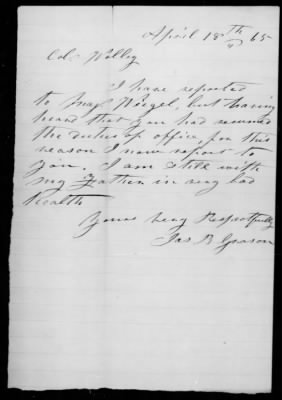 April 18th 65
Col Wolley
I have reported
to Maj Wiegel, but having
heard that you had resumed
the duties of office, for this
reason I now report to
you. I am still with
my Father in very bad
health
Yours very Respectfully
Jas B Grason